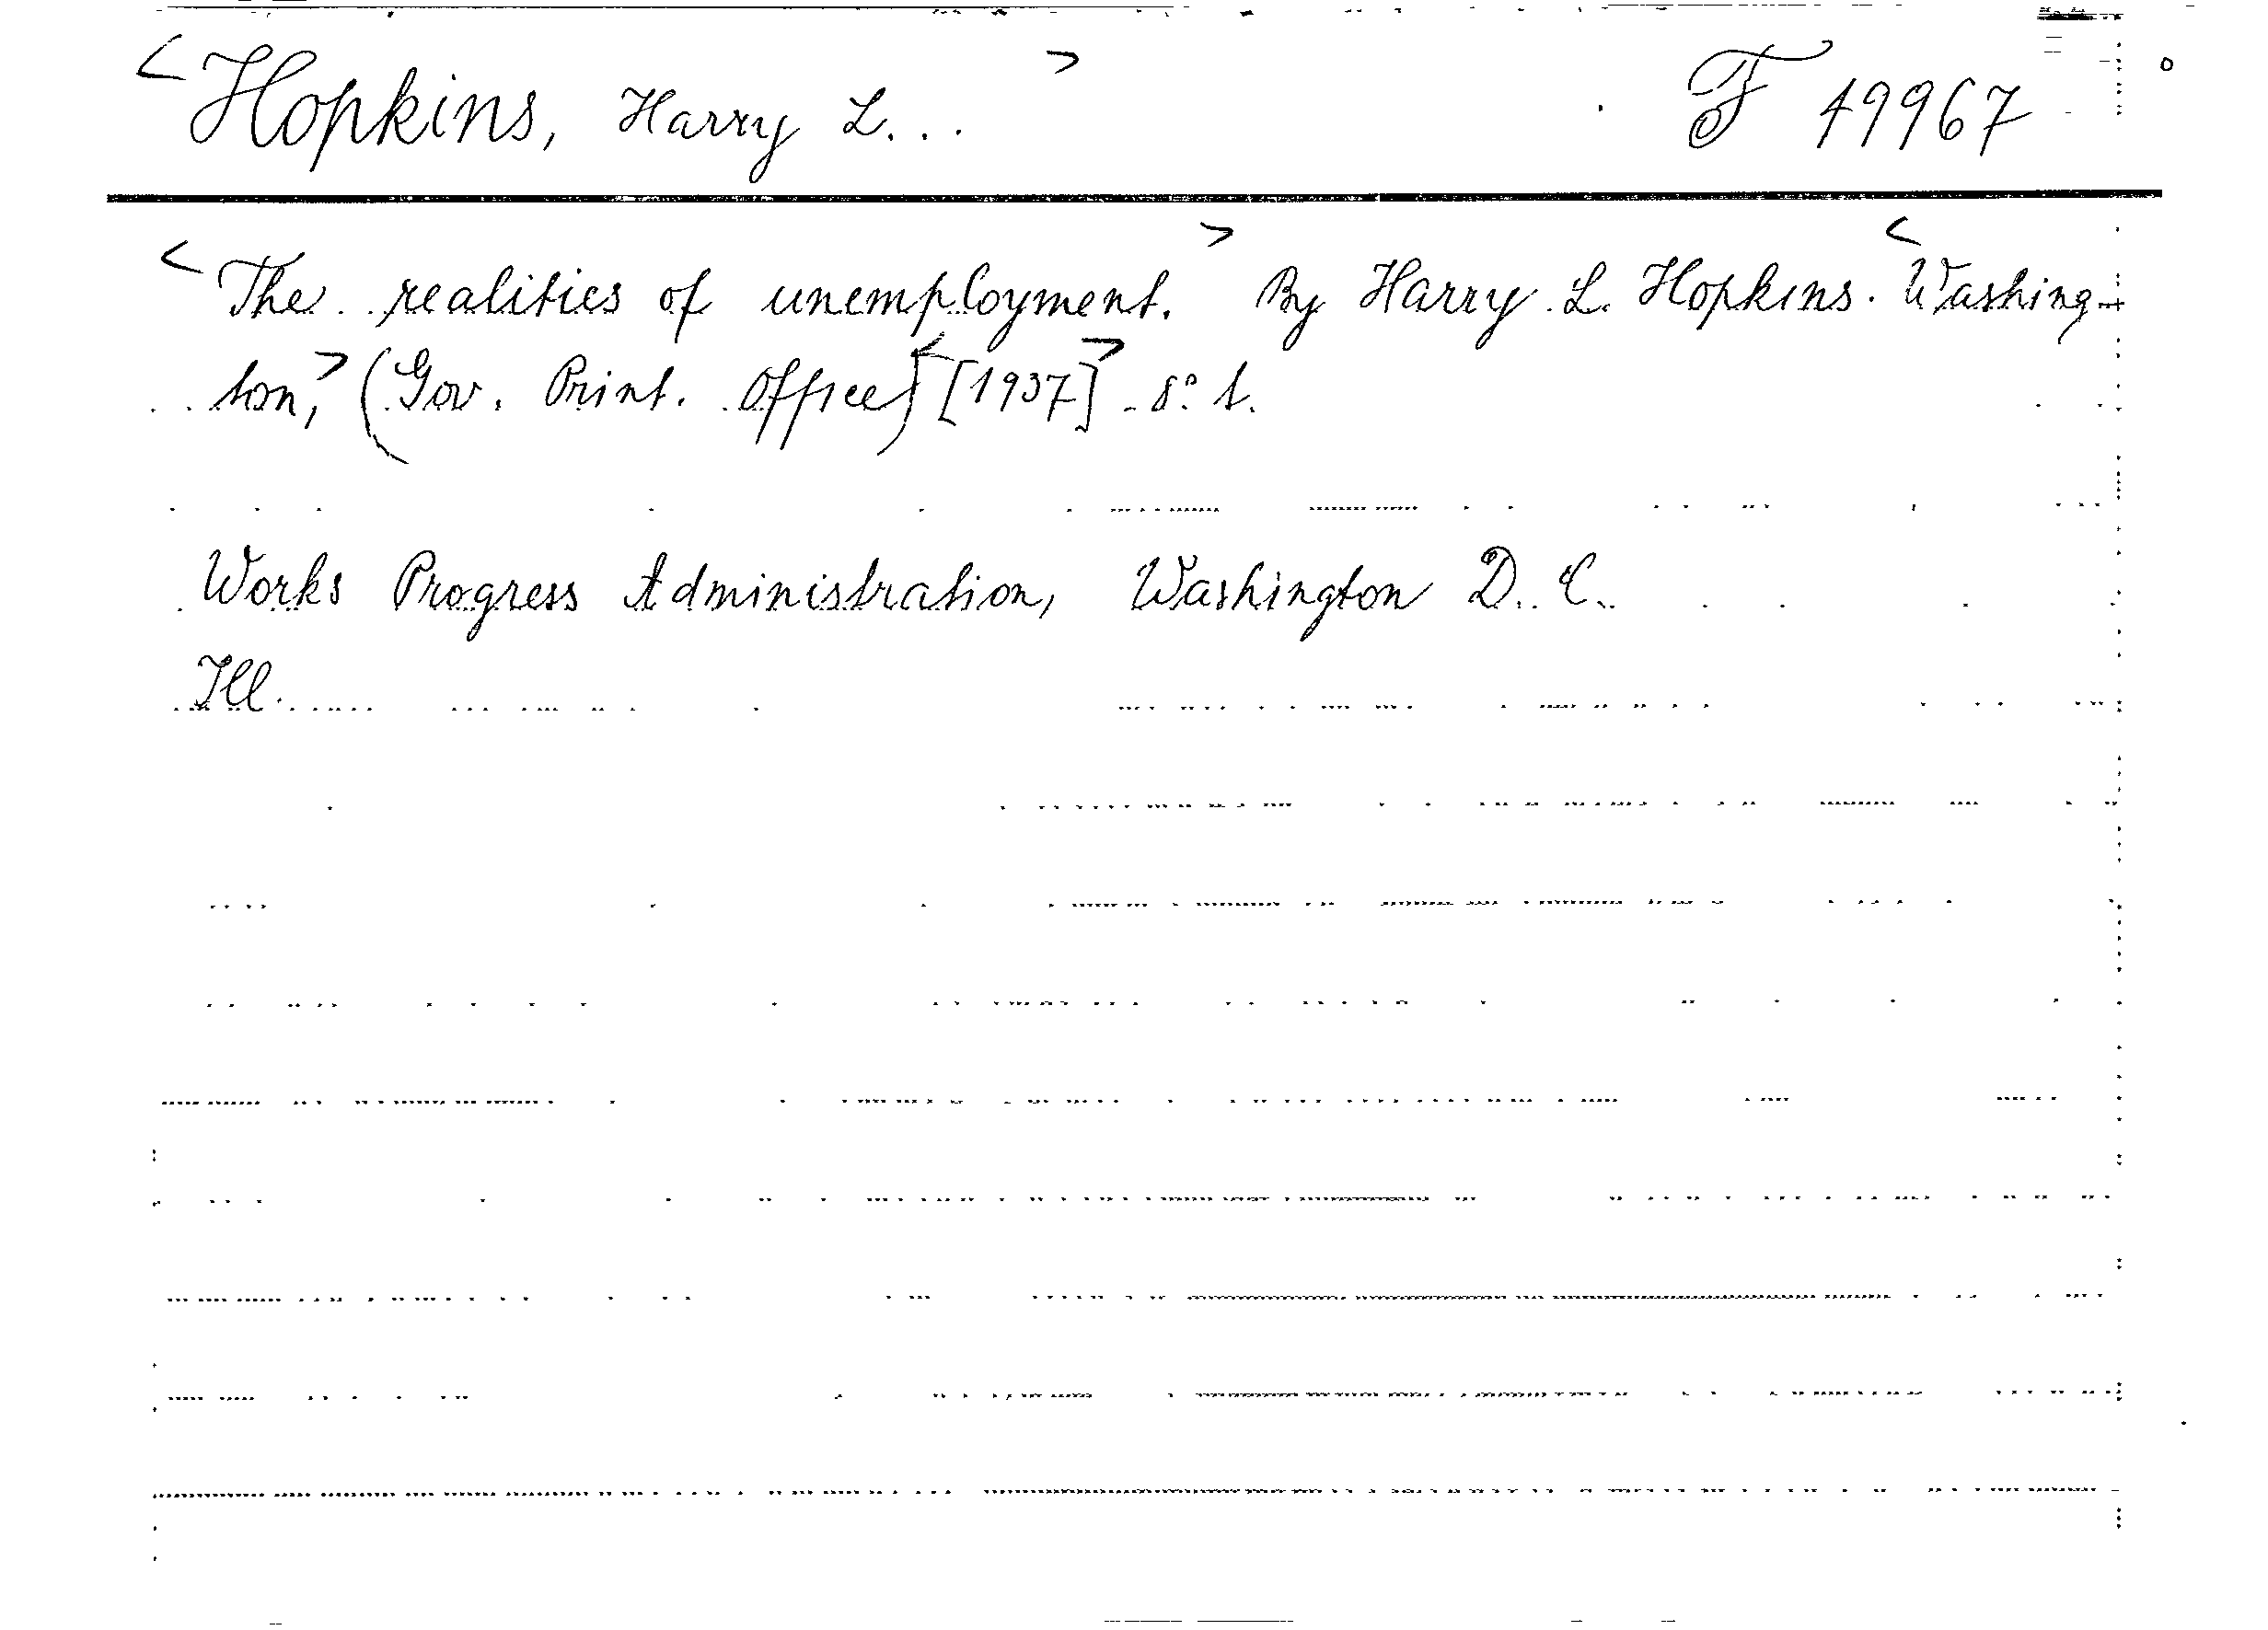 <Hopkins, Harry L...> F 49967
<The realities of unemployment.> By Harry L. Hopkins. <Washing-
ton,> (Gov. Print. Office) <[1937]> - 8° t.
Works Progress Administration, Washington D. C.
Ill.